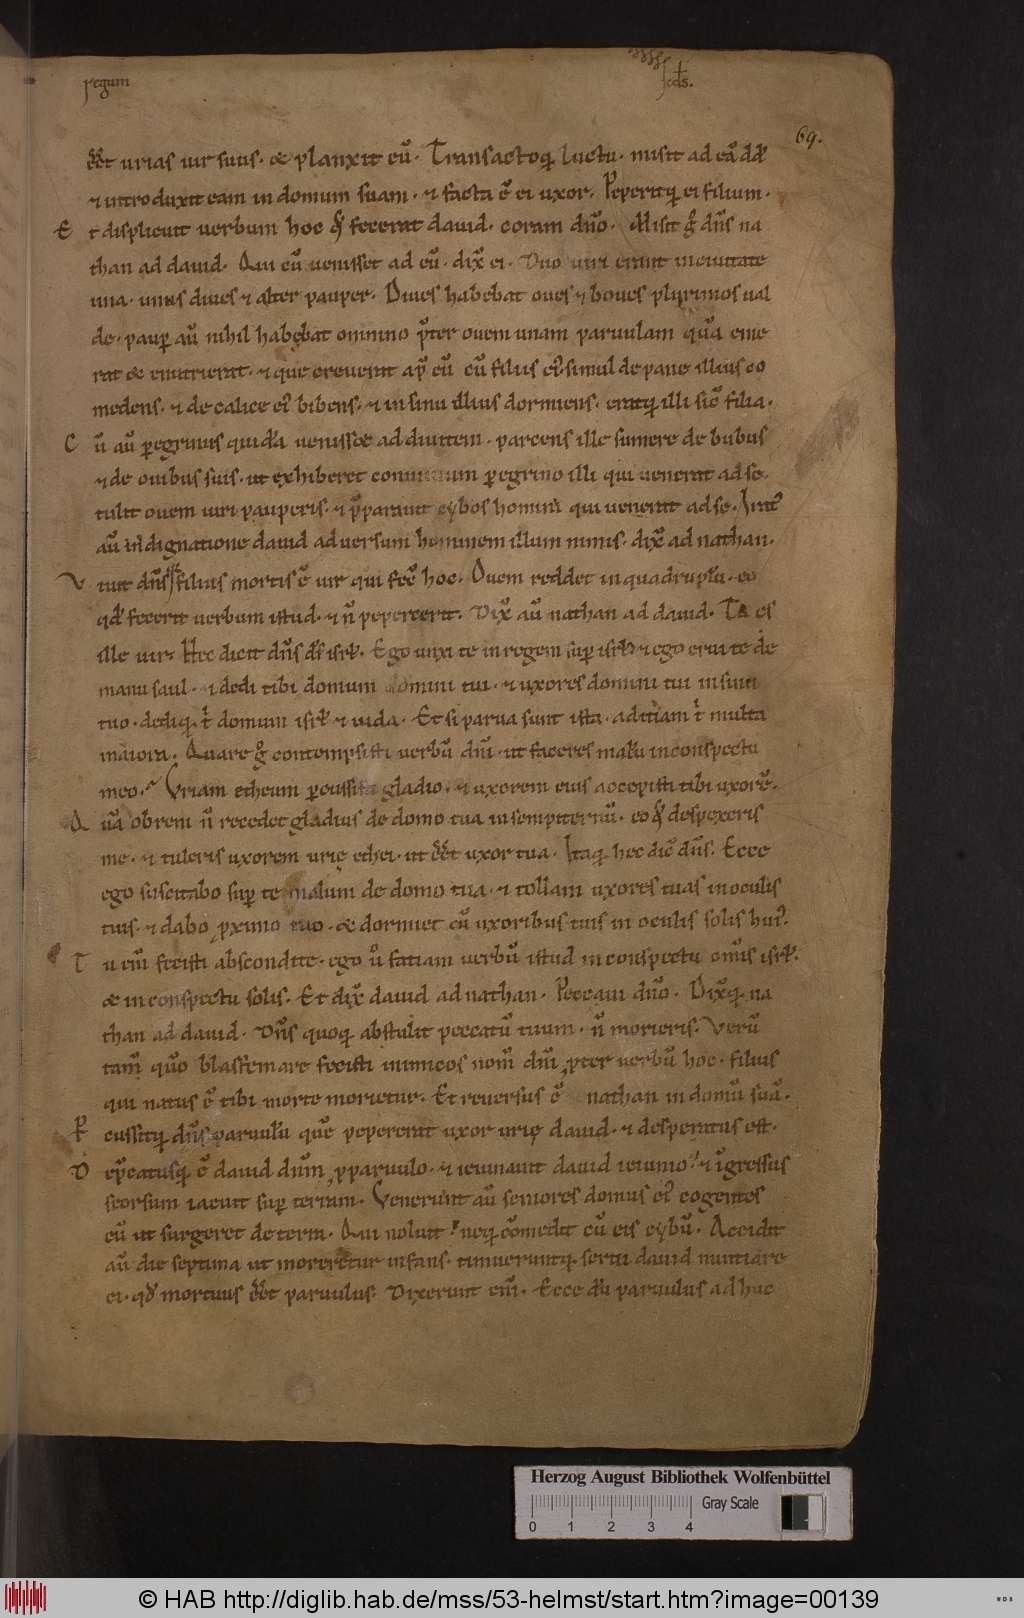 regum scds.
69.
eēt urias uir suus· & planxit eū· Transactoq; luctu· misit ad eā dd̄
& introduxit eam in domum suam· & facta ē ei uxor. Peperitq; ei filium·
Et displicuit uerbum hoc qd̄ fecerat dauid· coram dn̄o· Misit g̊ dn̄s na
than ad dauid· Qui cū uenisset ad eū· dix̄ ei· Duo uiri erant in ciuitate
una· unus diues & alter pauper· Diues habebat oues & boues plurimos ual
de· paup̄ aū nihil habebat omnino p̄ter ouem unam paruulam quā eme
rat & enutrierat· & que creuerat ap̄ eū cū filiis ei᾿ simul de pane illius co
medens· & de calice ei᾿ bibens· & in sinu illius dormiens· eratq; illi sic̄ filia·
Cū aū peregrinus quidā uenisset ad diuitem· parcens ille sumere de bubus
& de ouibus suis· ut exhiberet conuiuium peregrino illi qui uenerat ad se·
tulit ouem uiri pauperis· & p̄parauit cybos homini qui uenerat ad se· Irat᾿
aū indignatione dauid aduersum hominem illum nimis· dix̄ ad nathan·
Viuit dn̄s filius mortis ē uir qui fec̄ hoc· Ouem reddet in quadruplū· eo
qd̄ fecerit uerbum istud· & n̄ pepercerit· Dix̄ aū nathan ad dauid· Tu es
ille uir· Hec dicit dn̄s ds̄ isrl̄· Ego unxi te in regem sup̄ isrl̄ & ego erui te de
manu saul· & dedi tibi domum domini tui· & uxores domini tui in sinu
tuo· dediq; t̄ domum isrl̄ & iuda· Et si parua sunt ista· aditiam t̄ multa
maiora· Quare g̊ contempsisti uerbū dn̄i· ut faceres malū in conspectu
meo· Vriam etheum percussisti gladio· & uxorem eius accepisti tibi uxorē·
Quā obrem n̄ recedet gladius de domo tua in sempiternū· eo qd̄ despexeris
me· & tuleris uxorem urie ethei· ut eēt uxor tua· Itaq; hec dic̄ dn̄s· Ecce
ego suscitabo sup̄ te malum de domo tua· & tollam uxores tuas in oculis
tuis· & dabo p̱ximo tuo· & dormiet cū uxoribus tuis in oculis solis hui᾿·
Tu eni̅ fecisti abscondite· ego ů fatiam uerbū istud in conspectu om̄is isrl̄·
& in conspectu solis· Et dix̄ dauid ad nathan· Peccaui dn̄o· Dix̄q; na
than ad dauid· Dn̄s quoq; abstulit peccatū tuum· n̄ morieris· Verū
tam̄ quō blasfemare fecisti inimicos nom̄ dn̄i p̱pter uerbū hoc· filius
qui natus ē tibi morte morietur· Et reuersus ē nathan in domū suā·
Percussitq; dn̄s paruulū quē pepererat uxor urie dauid· & desperatus est·
Dep̄catusq; ē dauid dn̄m p̱ paruulo· & ieiunauit dauid ieiunio· & īgressus
seorsum iacuit sup̄ terram· Venerunt aū seniores domus ei᾿ cogentes
eū ut surgeret de terra· Qui noluit neq; cōmedit cū eis cybū· Accidit
aū die septima ut moreretur infans· timueruntq; serui dauid nuntiare
ei· qd̄ mortuus eēt paruulus· Dixerunt eni̅· Ecce dū paruulus ad huc
Herzog August Bibliothek Wolfenbüttel
Gray Scale
0 1 2 3 4
© HAB http://diglib.hab.de/mss/53-helmst/start.htm?image=00139